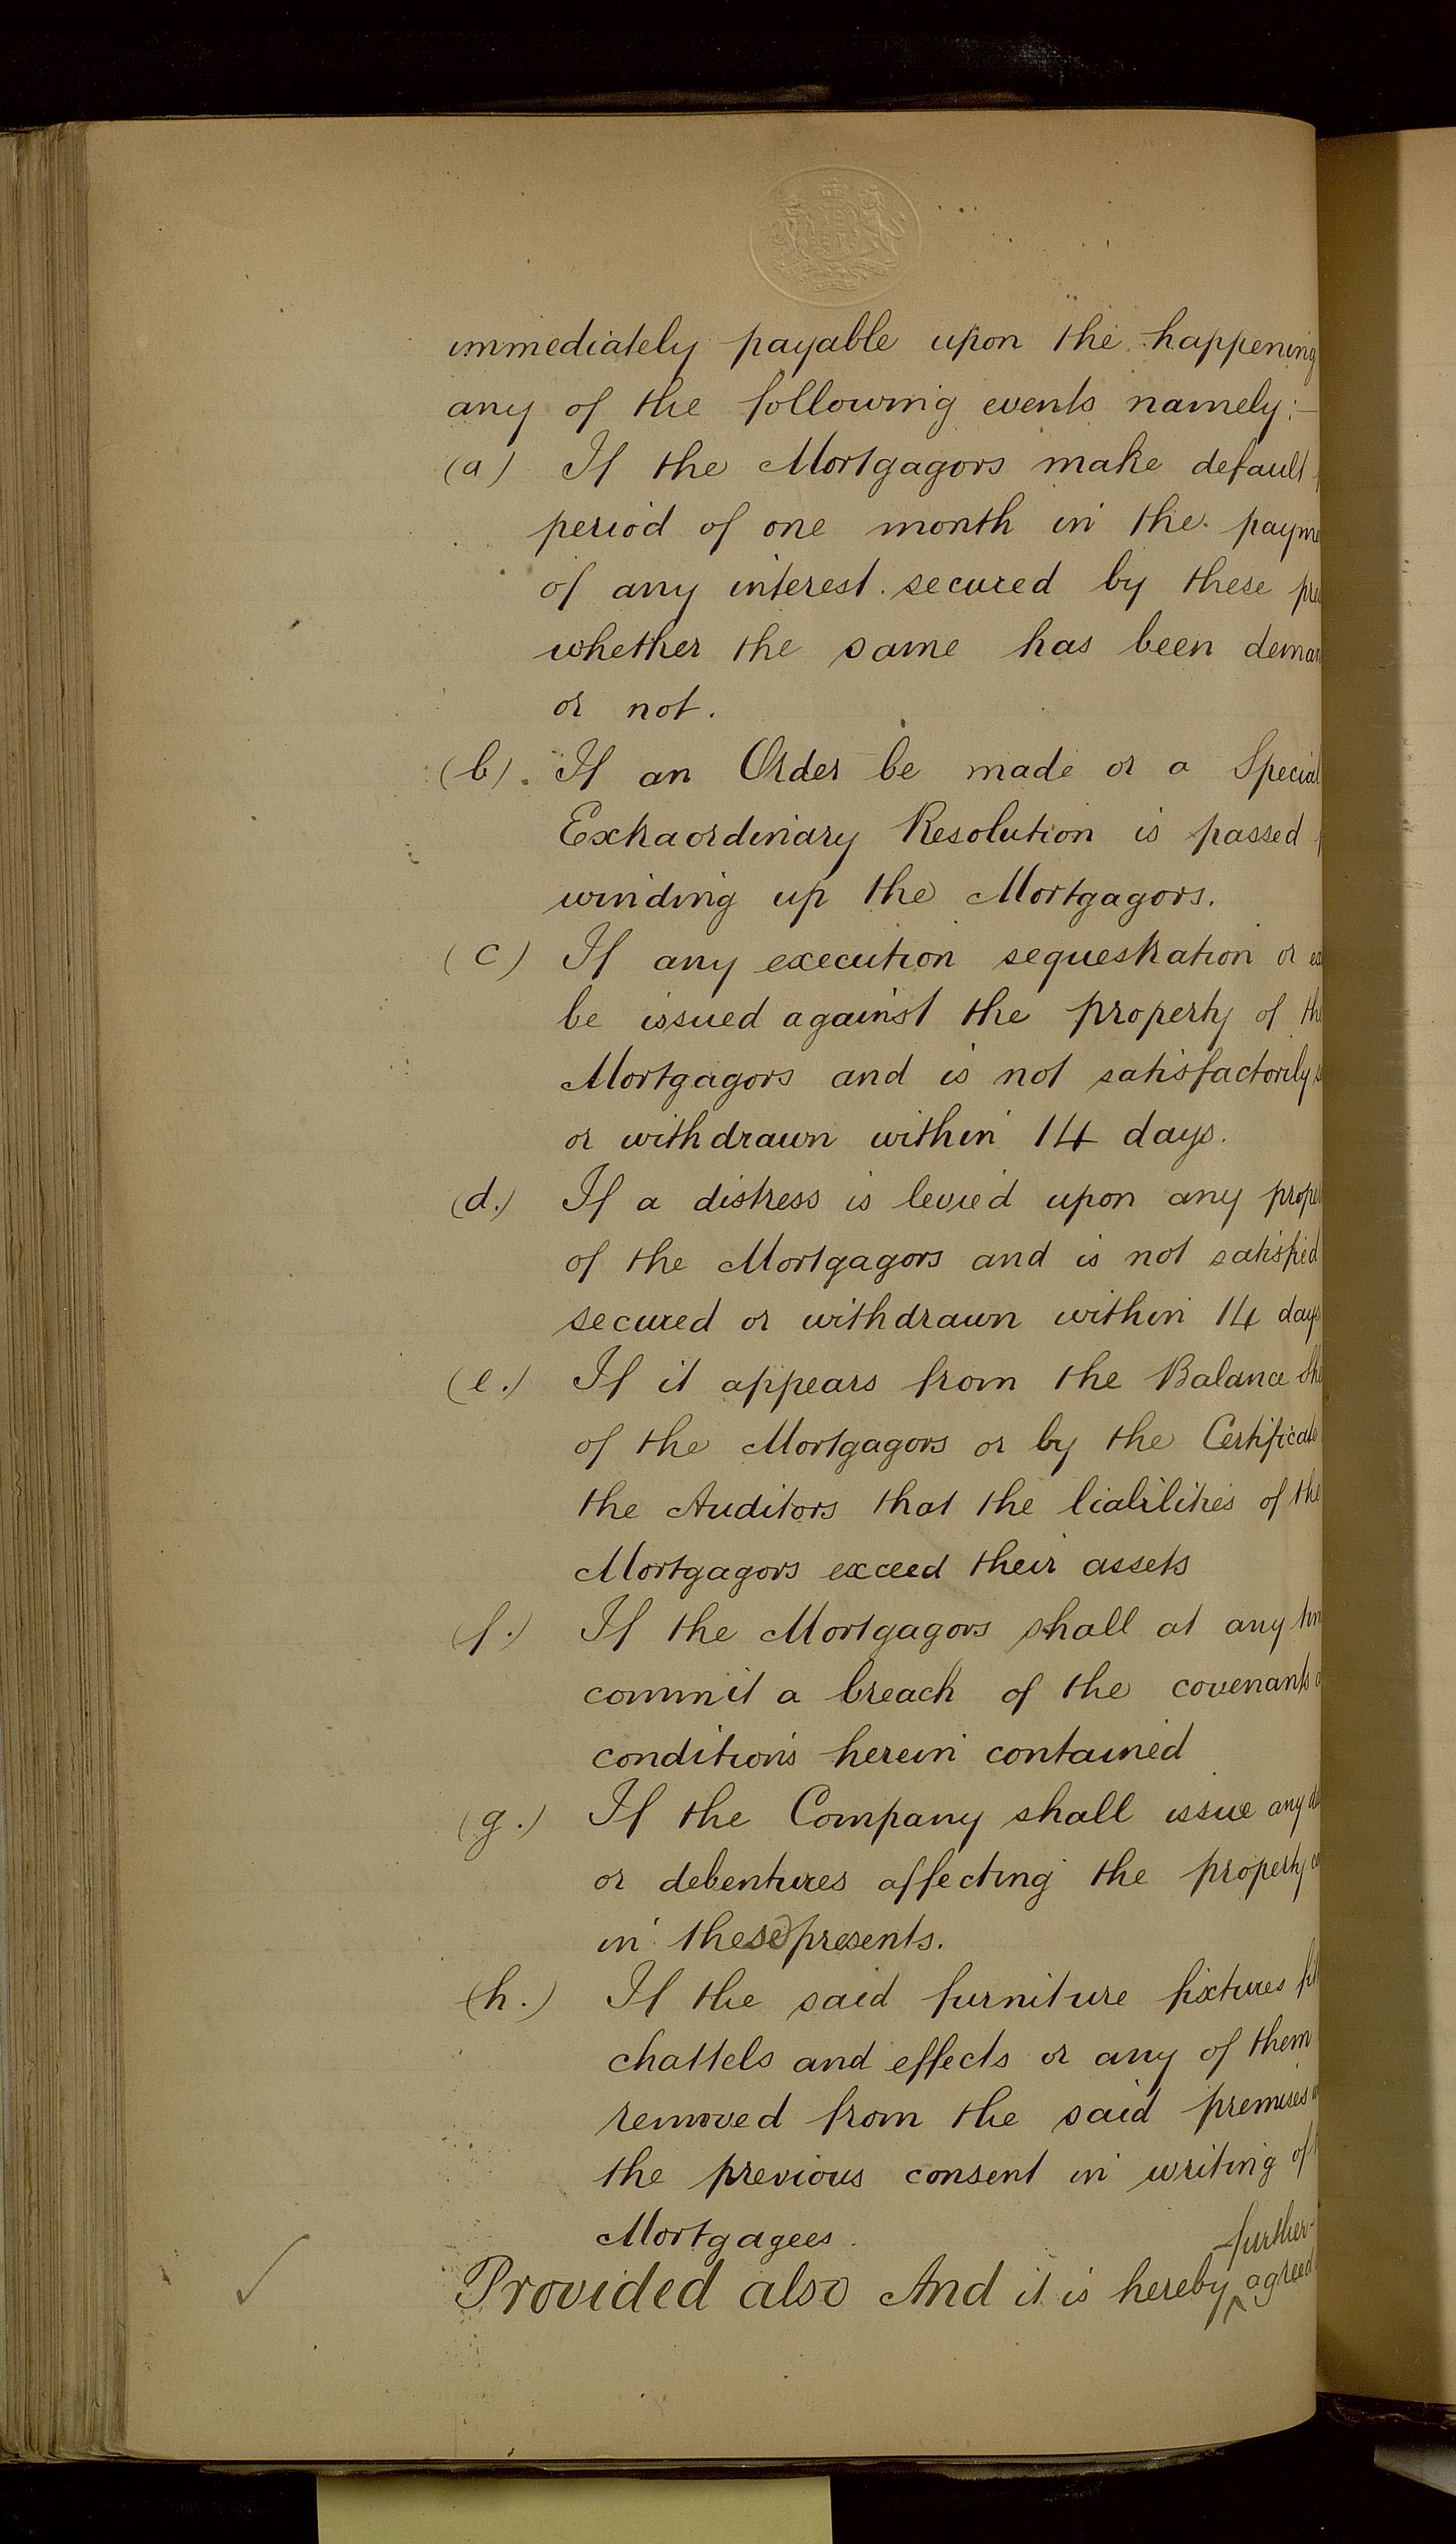 immediately payable upon the happening
any of the following events namely:—
(a) If the Mortgagors make default
period of one month in the payme
of any interest secured by these pre
whether the same has been deman
or not.
(b). If an Order be made or a Special
Extraordinary Resolution is passed
winding up the Mortgagors.
(c) If any execution sequestration or
be issued against the property of the
Mortgagors and is not satisfactorily
or withdrawn within 14 days.
(d.) If a distress is levied upon any proper
of the Mortgagors and is not satisfied
secured or withdrawn within 14 days
(e.) If it appears from the Balance She
of the Mortgagors or by the Certificate
the Auditors that the liabilities of the
Mortgagors exceed their assets
(f.) If the Mortgagors shall at any tim
commit a breach of the covenants
conditions herein contained
(g.) If the Company shall issue any
or debentures affecting the property
in these presents.
(h.) If the said furniture fixtures fit
chattels and effects or any of them
removed from the said premises
the previous consent in writing of
Mortgagees.
Provided also And it is hereby further agreed